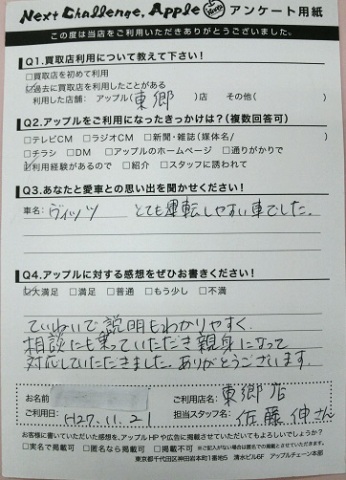 Next Challenge, Apple アンケート用紙
この度は当店をご利用いただきありがとうございました。
Q1.買取店利用について教えて下さい!
□買取店を初めて利用
☑過去に買取店を利用したことがある
利用した店舗: アップル(東郷)店 その他( )
Q2.アップルをご利用になったきっかけは?(複数回答可)
□テレビCM □ラジオCM □新聞・雑誌(媒体名/ )
□チラシ □DM □アップルのホームページ □通りがかりで
☑利用経験があるので □紹介 □スタッフに誘われて
Q3.あなたと愛車との思い出を聞かせください!
車名: ヴィッツ とても運転しやすい車でした。
Q4.アップルに対する感想をぜひお書きください!
☑大満足 □満足 □普通 □もう少し □不満
ていねいで説明もわかりやすく
相談にも乗っていただき親身になって
対応していただきました。ありがとうございます.
お名前 ご利用店名: 東郷店
ご利用日: H27.11.21 担当スタッフ名: 佐藤伸さん
お客様に書いていただいた感想を、アップルHPや広告に掲載させていただいてもよろしいでしょうか?
□実名で掲載可 □匿名で掲載可 □掲載不可 ※ご記入がない場合は匿名での掲載とさせていただきます。
東京都千代田区神田岩本町1番地5 清水ビル6F アップルチェーン本部